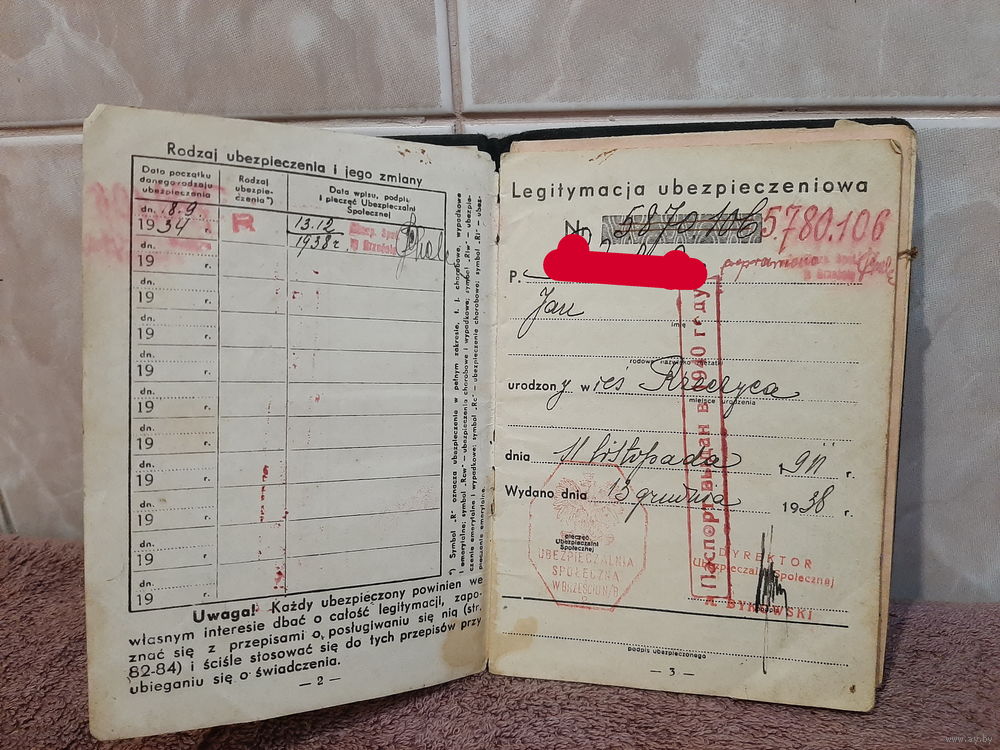 Rodzaj ubezpieczenia i jego zmiany
Data początku danego rodzaju ubezpieczenia
Rodzaj ubezpieczenia*)
Data wpisu, podpis i pieczęć Ubezpieczalni Społecznej
dn. 18.9.
1934 r.
R
13.12
1938 r
dn.
19 r.
dn.
19 r.
dn.
19 r.
dn.
19 r.
dn.
19 r.
dn.
19 r.
dn.
19 r.
dn.
19 r.
dn.
19 r.
dn.
19 r.
*) Symbol „R" oznacza ubezpieczenie w pełnym zakresie, t. j. chorobowe, wypadkowe
i emerytalne; symbol „Rcw" — ubezpieczenie chorobowe i wypadkowe; symbol „Rlw" — ubezpie-
czenie emerytalne i wypadkowe; symbol „Rc" — ubezpieczenie chorobowe; symbol „Rl" — ubez-
pieczenie emerytalne.
Uwaga! Każdy ubezpieczony powinien we
własnym interesie dbać o całość legitymacji, zapo-
znać się z przepisami o posługiwaniu się nią (str.
82-84) i ściśle stosować się do tych przepisów przy
ubieganiu się o świadczenia.
— 2 —
Legitymacja ubezpieczeniowa
Nr 5870106 5780.106
poprawiono
P.
Jan
imię
rodowe nazwisko mężatki
urodzony w wieś
miejsce urodzenia
dnia 11 listopada 1911 r.
Wydano dnia 13 grudnia 1938 r.
Паспорт выдан в 1940 году
pieczęć
Ubezpieczalni
Społecznej
UBEZPIECZALNIA
SPOŁECZNA
W BRZEŚCIU N/B
DYREKTOR
Ubezpieczalni Społecznej
podpis ubezpieczonego
— 3 —
www.ay.by